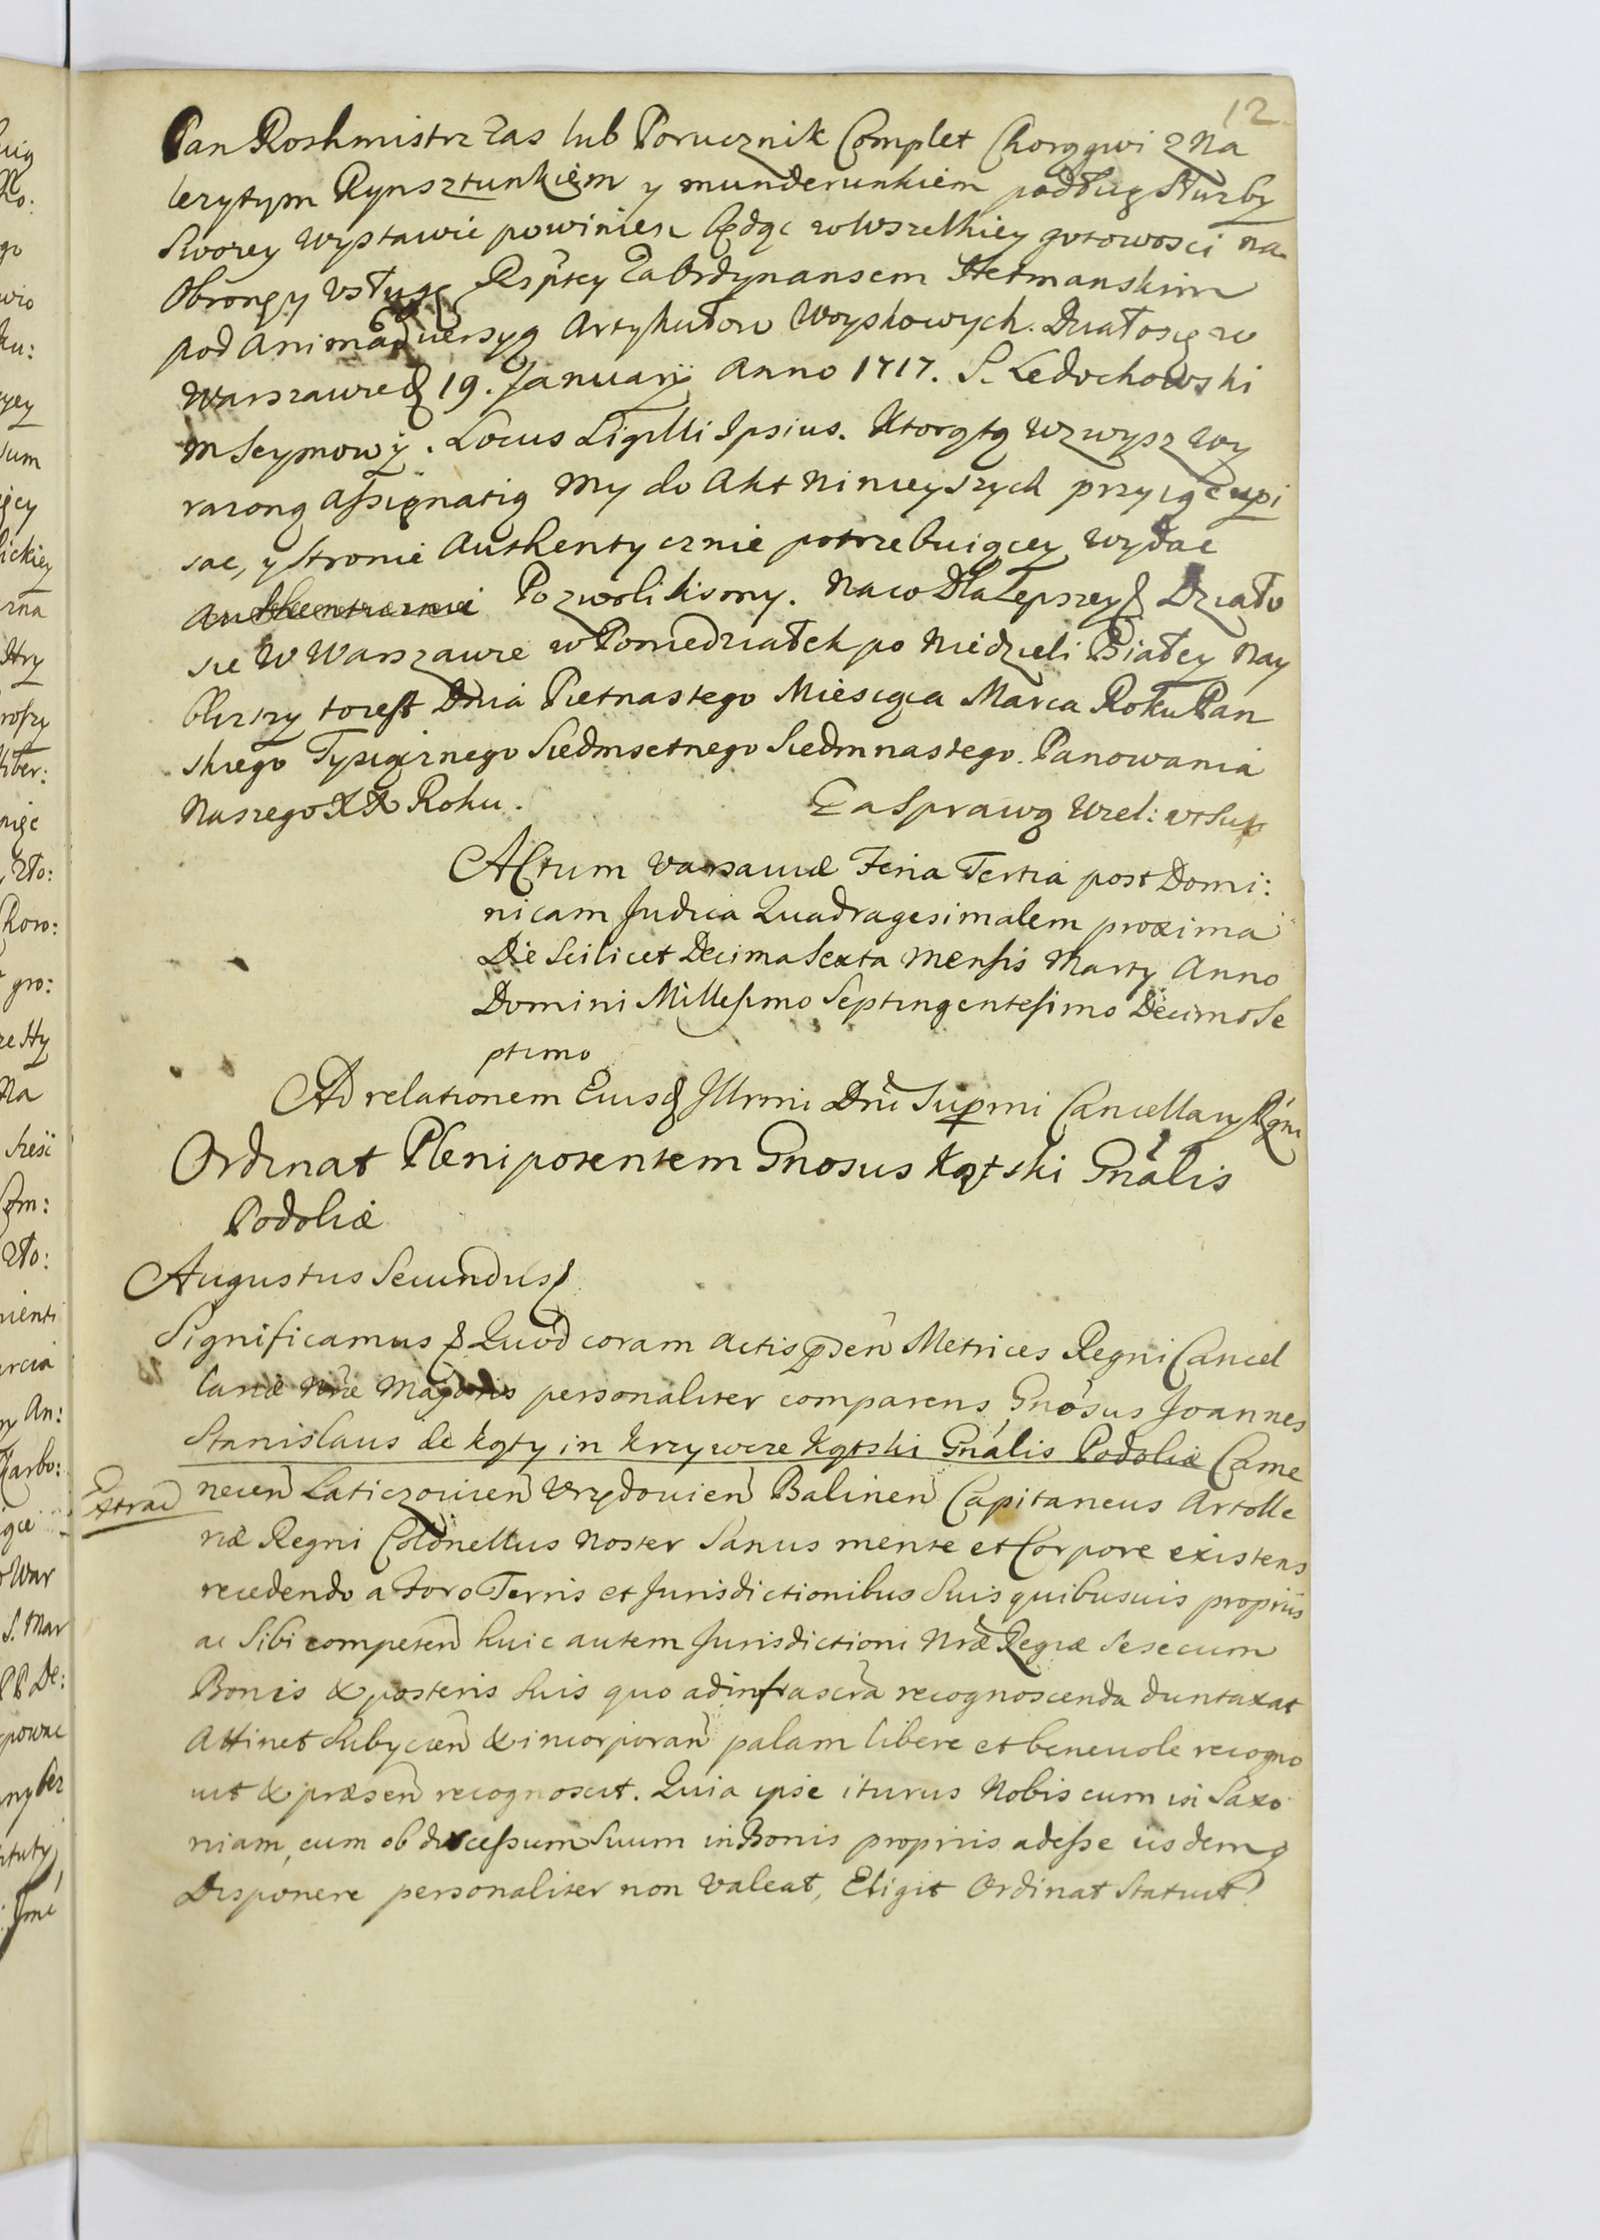 12.
Pan Roshmistrz zas lub Porucznik Complet Chorągwi z Na
lezytym Rynsztunkiem y munderunkiem podług służby
Swoiey wystawic powinien będąc w wszelkiey gotowosci na
Obronę y usługę Rsptey Za Ordynansem Hetmanskim
pod animadwersyą Artykułow Woyskowych. Działo się w
Warszawie & 19. January Anno 1717. S. Ledochowski
M Seymowy. Locus Sigilli Ipsius. Ktorą tą wzwysz wy
razoną assignatią my do Akt ninieyszych przyiąc wpi
sac, y stronie Authentycznie potrzebuiącey wydac
Pozwolilismy. Na co Dla Lepszey & Działo
sie w Warszawie w Poniedziałek po Niedzieli Białey Nay
blizszy to iest Dnia Pietnastego Miesiąca Marca Roku Pan
skiego Tysiącznego Siedmsetnego Siedmnastego. Panowania
Naszego XX Roku.
Za Sprawą Wiel: ut Sup
Actum Varsaviæ Feria Tertia post Domi:
nicam Judica Quadragesimalem proxima
Die Scilicet Decima Sexta Mensis Marty Anno
Domini Millesimo Septingentesimo Decimo Se
ptimo
Ad relationem Eiusd Illrmi Dni Supmi Cancellary Rgni
Ordinat Plenipotentem Gnosus Kątski Gnalis
Podoliæ
Augustus Secundus &
Significamus & Quod coram Actis pden Metrices Regni Cancel
lariæ Nræ Majoris personaliter comparens Gnosus Joannes
Stanislaus de Kąty in Krzywcze Kątski Gnalis Podoliæ Came
necen Laticzovien Urzędovien Balinen Capitaneus Artolle
Extrad
riæ Regni Colonellus Noster Sanus mente et Corpore existens
recedendo a Foro Terris et Jurisdictionibus Suis quibusuis propriis
ac Sibi competen huic autem Jurisdictioni Nræ Regiæ Sese cum
Bonis & posteris Suis quo ad infrascra recognoscenda duntaxat
Attinet Subycien & incorporan palam libere et beneuole recogno
uit & præsen recognoscit. Quia ipse iturus Nobiscum in Saxo
niam, cum ob discessum Suum in Bonis propriis adesse iisdemq
Disponere personaliter non valeat, Eligit Ordinat Statuit